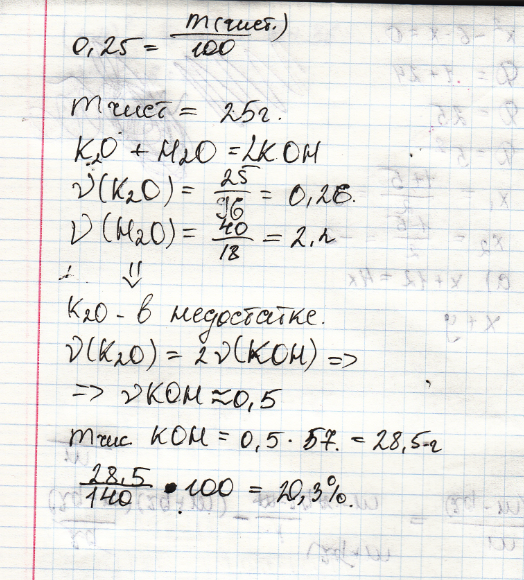 0,25 = m(чист.)/100
m чист = 25г.
K2O + H2O = 2KOH
ν(K2O) = 25/96 = 0,26.
ν(H2O) = 40/18 = 2,2
⇓
K2O - в недостатке.
ν(K2O) = 2ν(KOH) =>
=> νKOH ≈ 0,5
m чис KOH = 0,5 · 57 = 28,5 г
28,5/140 · 100 = 20,3%.